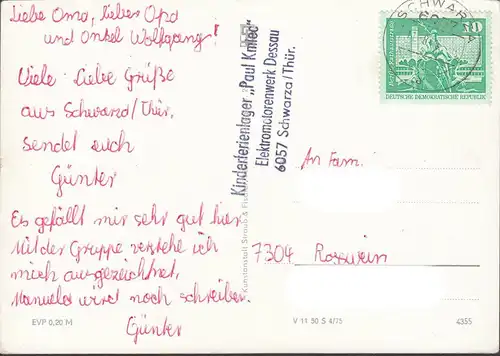 Liebe Oma, lieber Opa
und Onkel Wolfgang!
Viele liebe Grüße
aus Schwarza/Thür.
sendet euch
Günter
Es gefällt mir sehr gut hier.
Mit der Gruppe verstehe ich
mich ausgezeichnet.
Manuela wird noch schreiben.
Günter
EVP 0,20 M
Kunstanstalt Straub &
Kinderferienlager „Paul
Elektromotorenwerk Dessau
6057 Schwarza/Thür.
SCHWARZA
70
DEUTSCHE DEMOKRATISCHE REPUBLIK
An Fam.
7304 Rosswein
V 11 50 S 4/75
4355